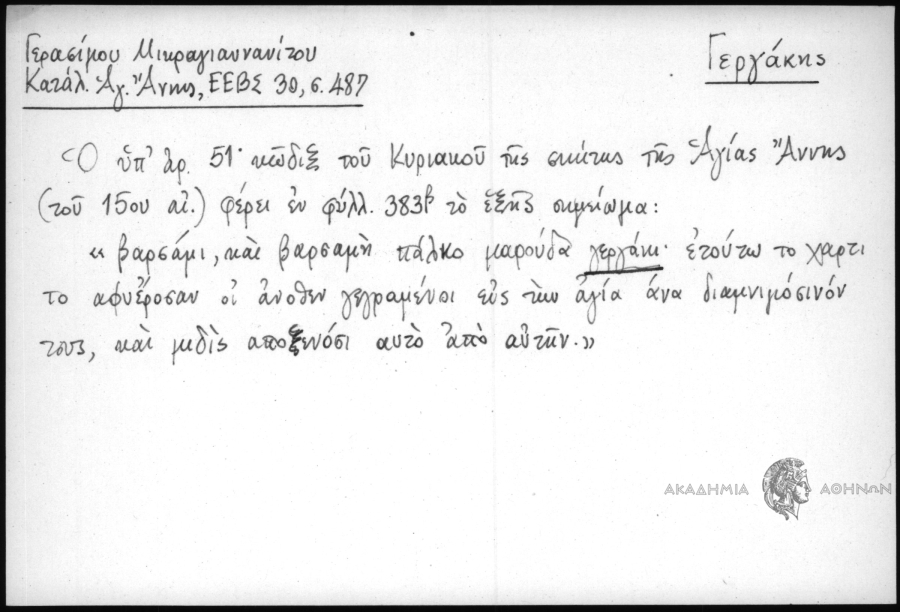 Γερασίμου Μικραγιαννανίτου
Κατάλ. Ἁγ. Ἄννης, ΕΕΒΣ 30, σ. 487
Γεργάκης
Ὁ ὑπ' ἀρ. 51· κῶδιξ τοῦ Κυριακοῦ τῆς σκήτης τῆς Ἁγίας Ἄννης
(τοῦ 15ου αἰ.) φέρει ἐν φύλλ. 383β τὸ ἑξῆς σημείωμα:
« βαρσάμι, καὶ βαρσαμὴ πάλκο μαρούδα γεργάκι· ἐτούτω το χαρτι
το αφυέροσαν οἱ ἄνοθεν γεγραμένοι εὶς τὴν ἁγία ἄνα διαμνιμόσινόν
τους, καὶ μιδὶς αποξενόσι αυτὸ ἀπὸ αὐτῆν.»
ΑΚΑΔΗΜΙΑ ΑΘΗΝΩΝ